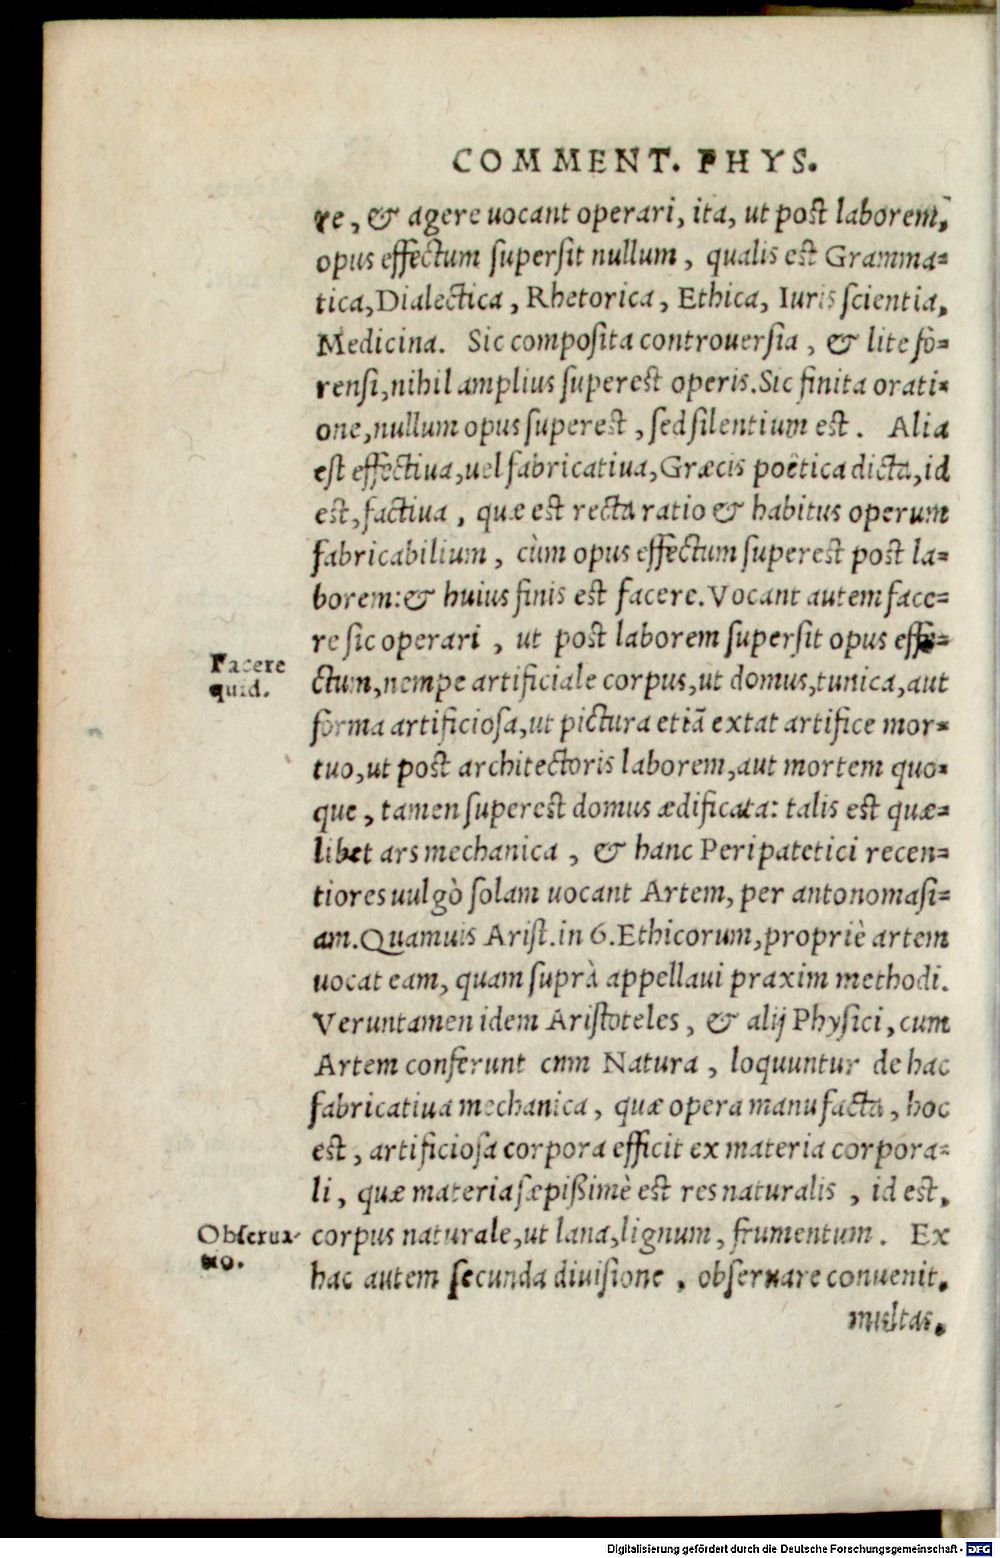 COMMENT. PHYS.
re, & agere uocant operari, ita, ut post laborem,
opus effectum supersit nullum, qualis est Gramma=
tica, Dialectica, Rhetorica, Ethica, Iuris scientia,
Medicina. Sic composita controuersia, & lite fo=
rensi, nihil amplius superest operis. Sic finita orati=
one, nullum opus superest, sed silentium est. Alia
est effectiua, uel fabricatiua, Græcis poëtica dicta, id
est, factiua, quæ est recta ratio & habitus operum
fabricabilium, cùm opus effectum superest post la=
borem: & huius finis est facere. Vocant autem face=
re sic operari, ut post laborem supersit opus effe=
Facere
quid.
ctum, nempe artificiale corpus, ut domus, tunica, aut
forma artificiosa, ut pictura etiã extat artifice mor=
tuo, ut post architectoris laborem, aut mortem quo=
que, tamen superest domus ædificata: talis est quæ=
libet ars mechanica, & hanc Peripatetici recen=
tiores uulgò solam uocant Artem, per antonomasi=
am. Quamuis Arist. in 6. Ethicorum, propriè artem
uocat eam, quam suprà appellaui praxim methodi.
Veruntamen idem Aristoteles, & alij Physici, cum
Artem conferunt cnm Natura, loquuntur de hac
fabricatiua mechanica, quæ opera manu facta, hoc
est, artificiosa corpora efficit ex materia corpora=
li, quæ materia sæpißimè est res naturalis, id est,
Obserua-
tio.
corpus naturale, ut lana, lignum, frumentum. Ex
hac autem secunda diuisione, obseruare conuenit,
multas,
Digitalisierung gefördert durch die Deutsche Forschungsgemeinschaft - DFG